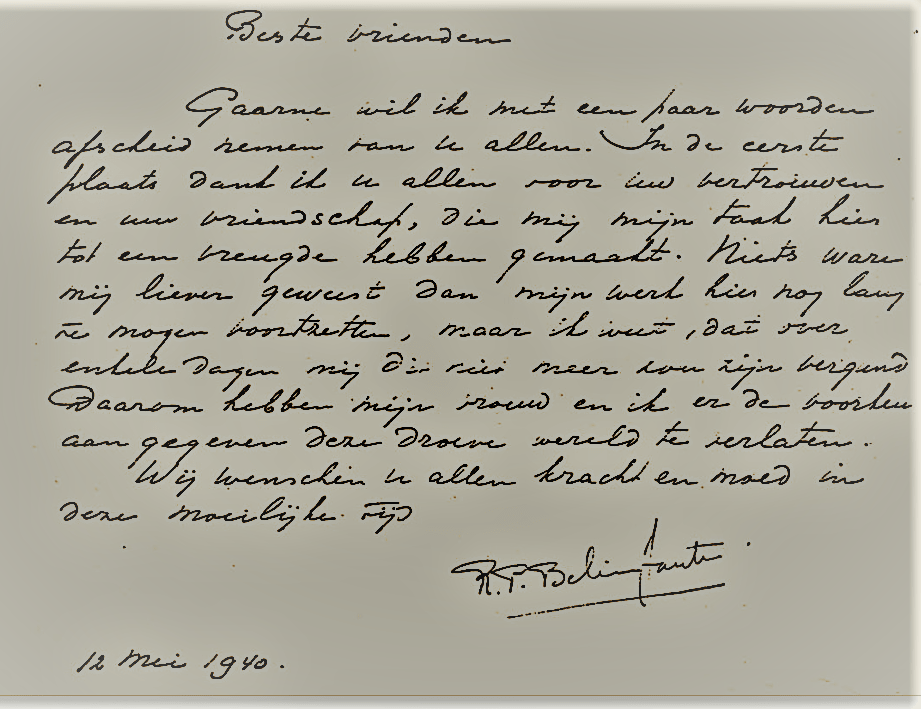 Beste vrienden
Gaarne wil ik met een paar woorden
afscheid nemen van u allen. In de eerste
plaats dank ik u allen voor uw vertrouwen
en uw vriendschap, die mij mijn taak hier
tot een vreugde hebben gemaakt. Niets ware
mij liever geweest dan mijn werk hier nog lang
te mogen voortzetten, maar ik weet, dat over
enkele dagen mij dit niet meer zou zijn vergund
Daarom hebben mijn vrouw en ik er de voorkeur
aan gegeven deze droeve wereld te verlaten.
Wij wenschen u allen kracht en moed in
deze moeilijke tijd
Belinfante
12 Mei 1940.